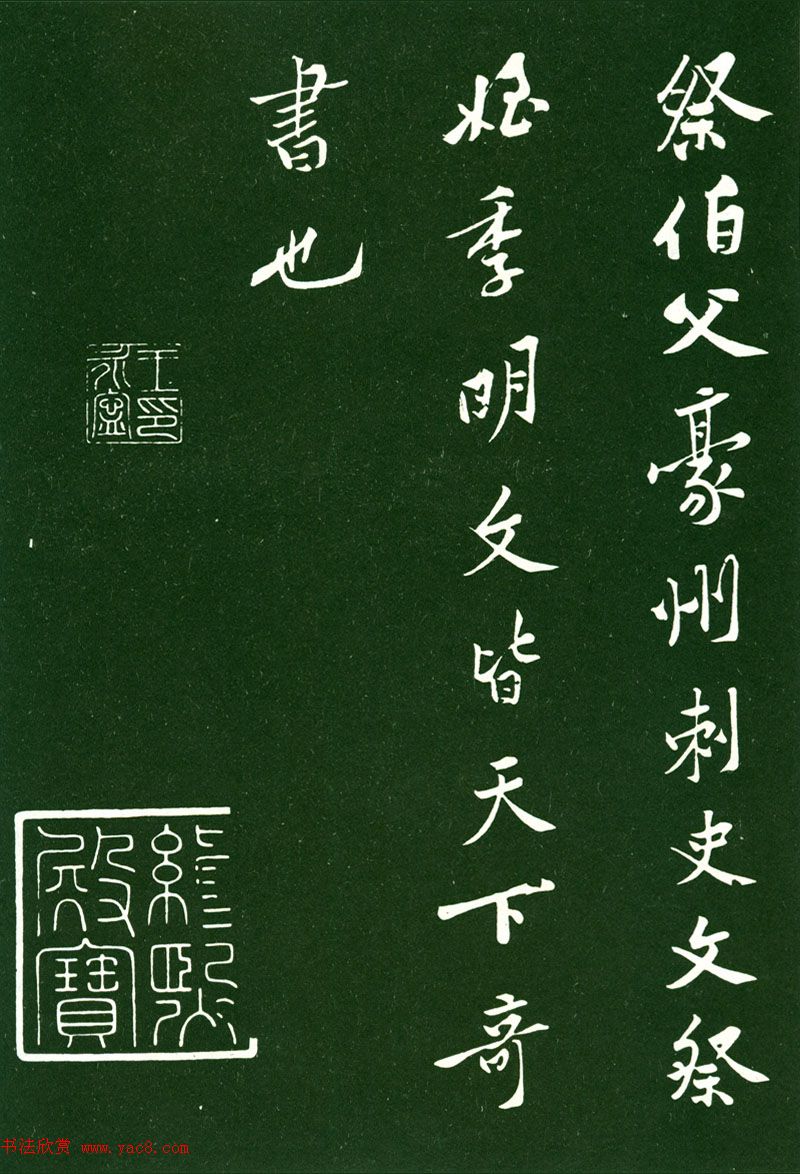 祭伯父豪州刺史文祭
姪季明文皆天下奇
書也
王印
永寧
緝熙
殿寶
书法欣赏 www.yac8.com